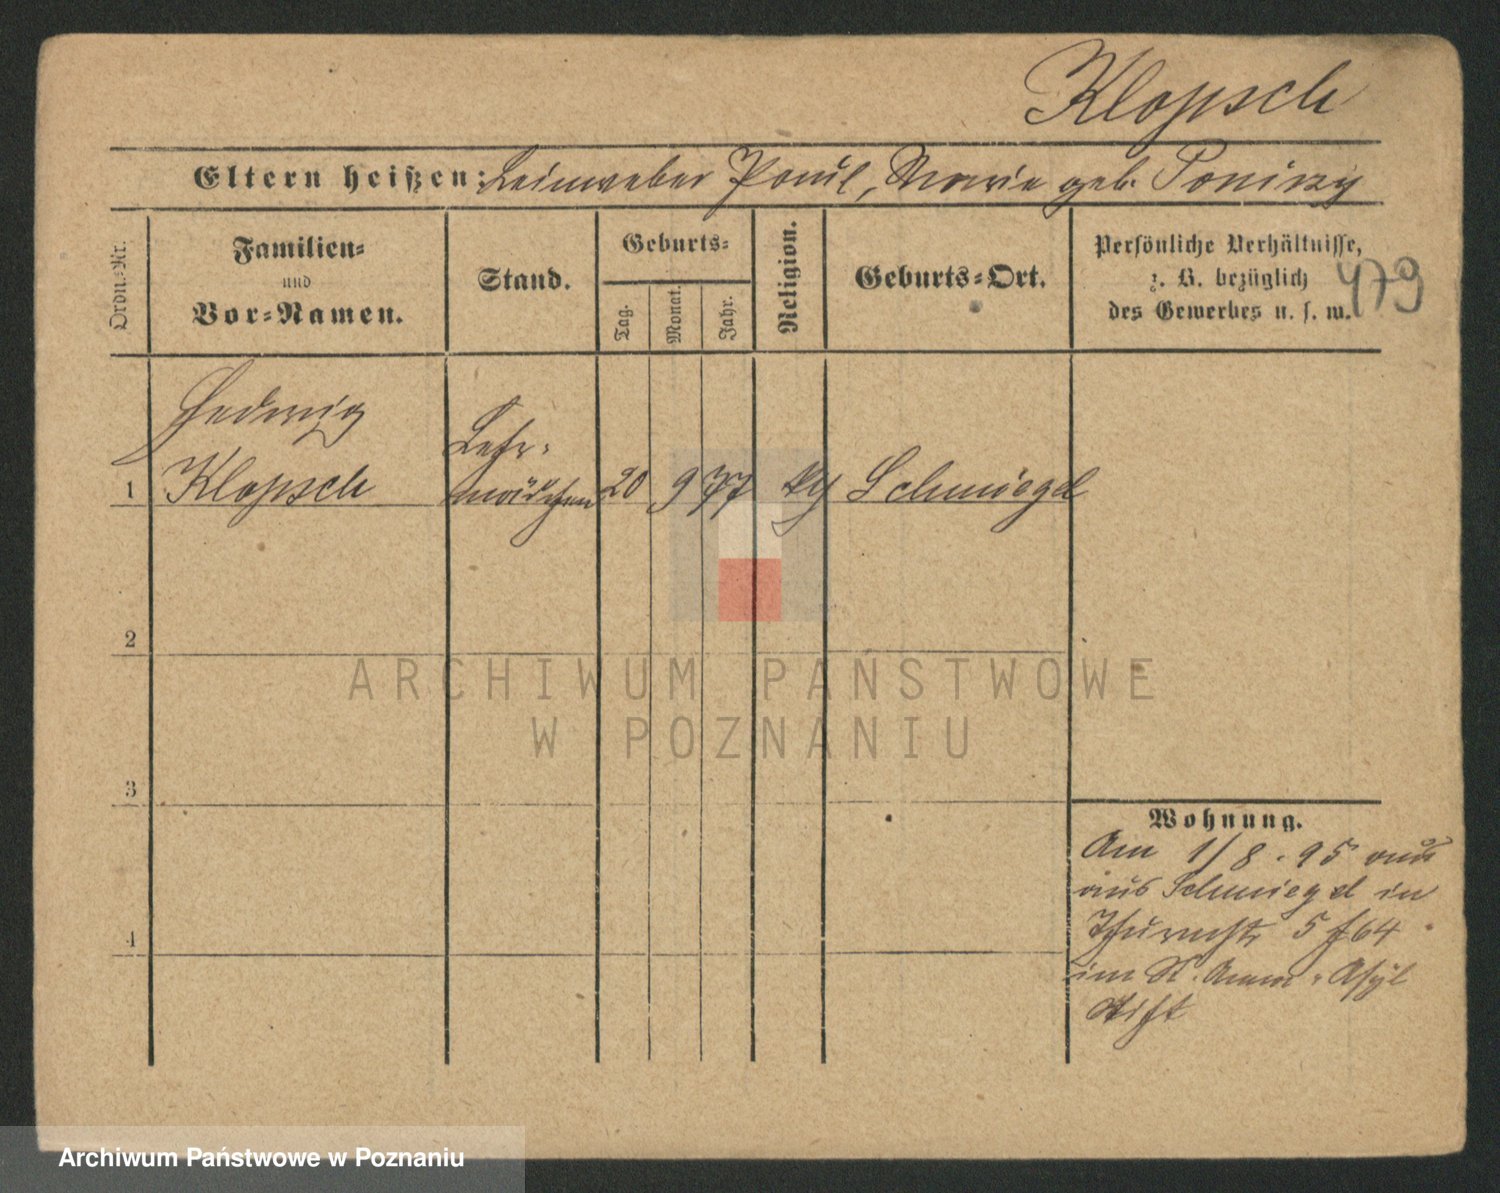 Klopsch
Eltern heißen: Leinweber Paul, Marie geb.
Ordn.-Nr.
Familien-
und
Vor-Namen.
Stand.
Geburts-
Tag.
Monat.
Jahr.
Religion.
Geburts-Ort.
Persönliche Verhältnisse,
z. B. bezüglich
des Gewerbes u. s. w.
479
Hedwig
Lehr-
1 Klopsch mädchen 20 9 77 Schmiegel
2
3
4
Wohnung.
Am 1/8. 95
aus Schmiegel in
5 64
im St. Anna-Asyl
Stift
ARCHIWUM PAŃSTWOWE
W POZNANIU
Archiwum Państwowe w Poznaniu